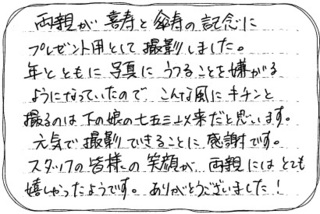 両親が喜寿と傘寿の記念に
プレゼント用として撮影しました。
年とともに写真にうつることを嫌がる
ようになっていたので、こんな風にキチンと
撮るのは下の娘の七五三以来だと思います。
元気で撮影できることに感謝です。
スタッフの皆様の笑顔が、両親にはとても
嬉しかったようです。ありがとうございました!